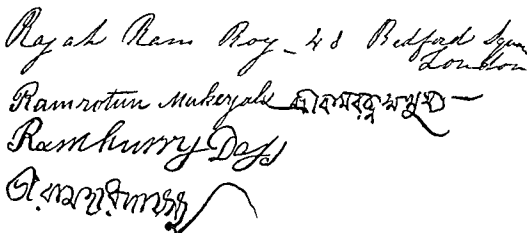 Rajah Ram Roy _ 48 Bedford Square
London
Ramrotun Mukerjah শ্রীরামরত্ন মুখ্য
Ramhurry Doss
শ্রীরামহরিদাসস্য